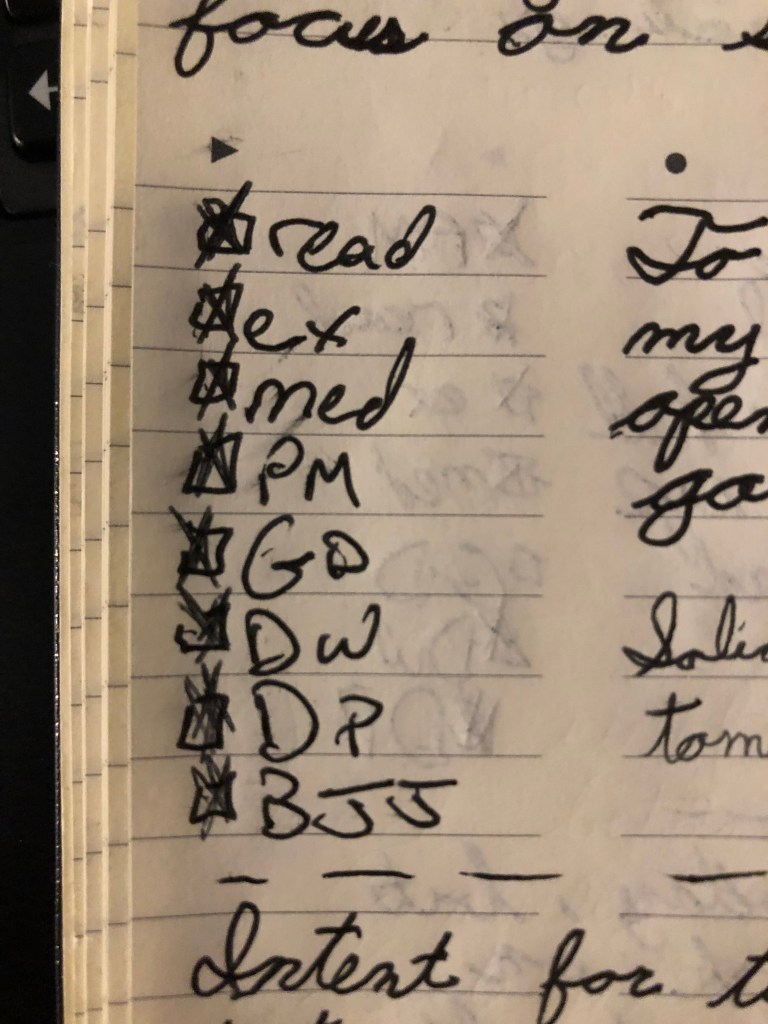 focus on
read
ex
med
PM
GD
DW
DP
BJJ
To
my
open
go
tom
Intent for